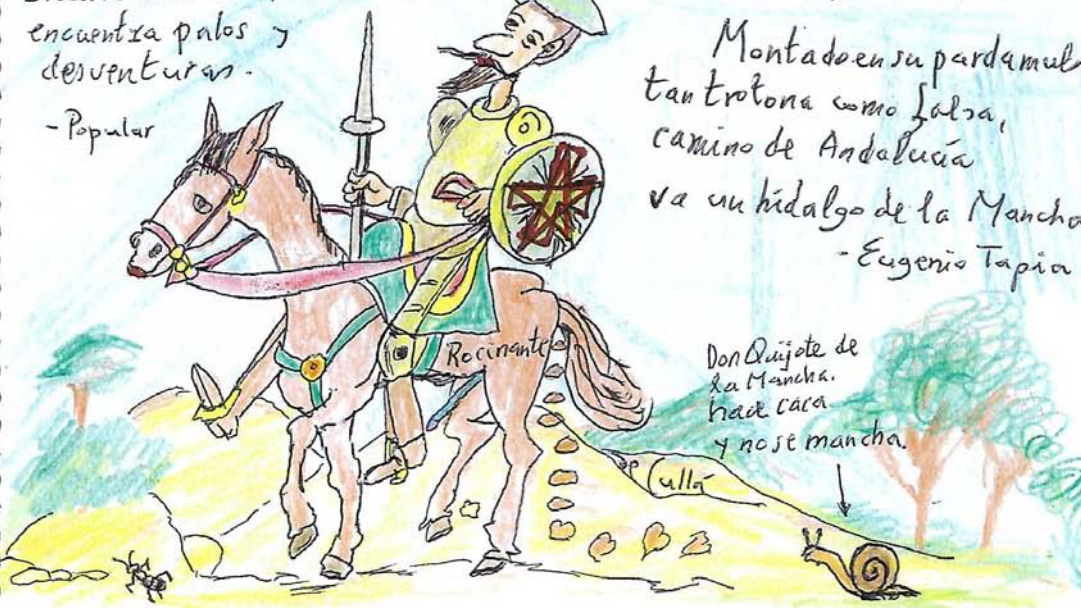 encuentra palos y
desventuras.
- Popular
Montado en su parda mul
tan trotona como falsa,
camino de Andalucía
va un hidalgo de la Mancha
- Eugenio Tapia
Rocinante
Don Quijote de
la Mancha.
hace caca
y no se mancha.
Cullá